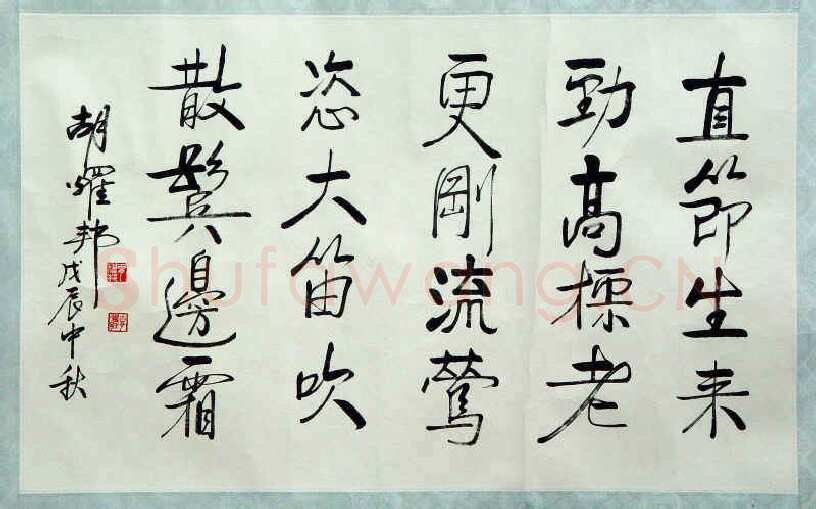 直節生来
勁高標老
更剛流鶯
恣大笛吹
散鬢邊霜
胡耀邦戊辰中秋
Shufawang.CN